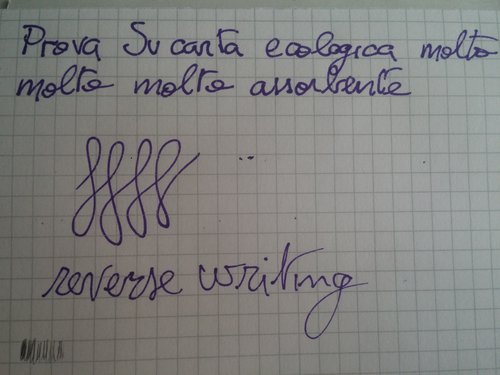 Prova Su carta ecologica molto
molto molto assorbente
reverse writing